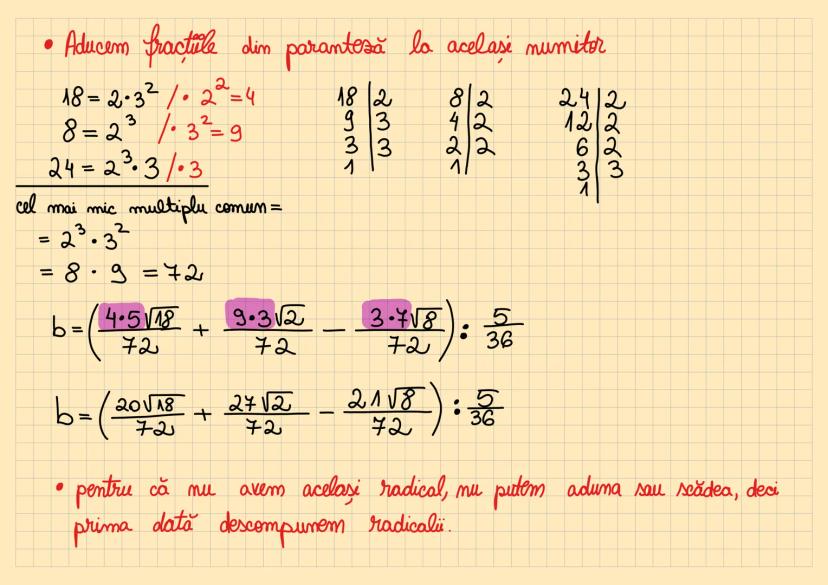 • Aducem fracțiile din paranteză la același numitor
18 = 2·3² /· 2² = 4
8 = 2³ /· 3² = 9
24 = 2³·3 /· 3
18 | 2
9 | 3
3 | 3
1 |
8 | 2
4 | 2
2 | 2
1 |
24 | 2
12 | 2
6 | 2
3 | 3
1 |
cel mai mic multiplu comun =
= 2³·3²
= 8 · 9 = 72
b = (4·5√18/72 + 9·3√2/72 − 3·7√8/72) : 5/36
b = (20√18/72 + 27√2/72 − 21√8/72) : 5/36
• pentru că nu avem același radical, nu putem aduna sau scădea, deci
prima dată descompunem radicalii.